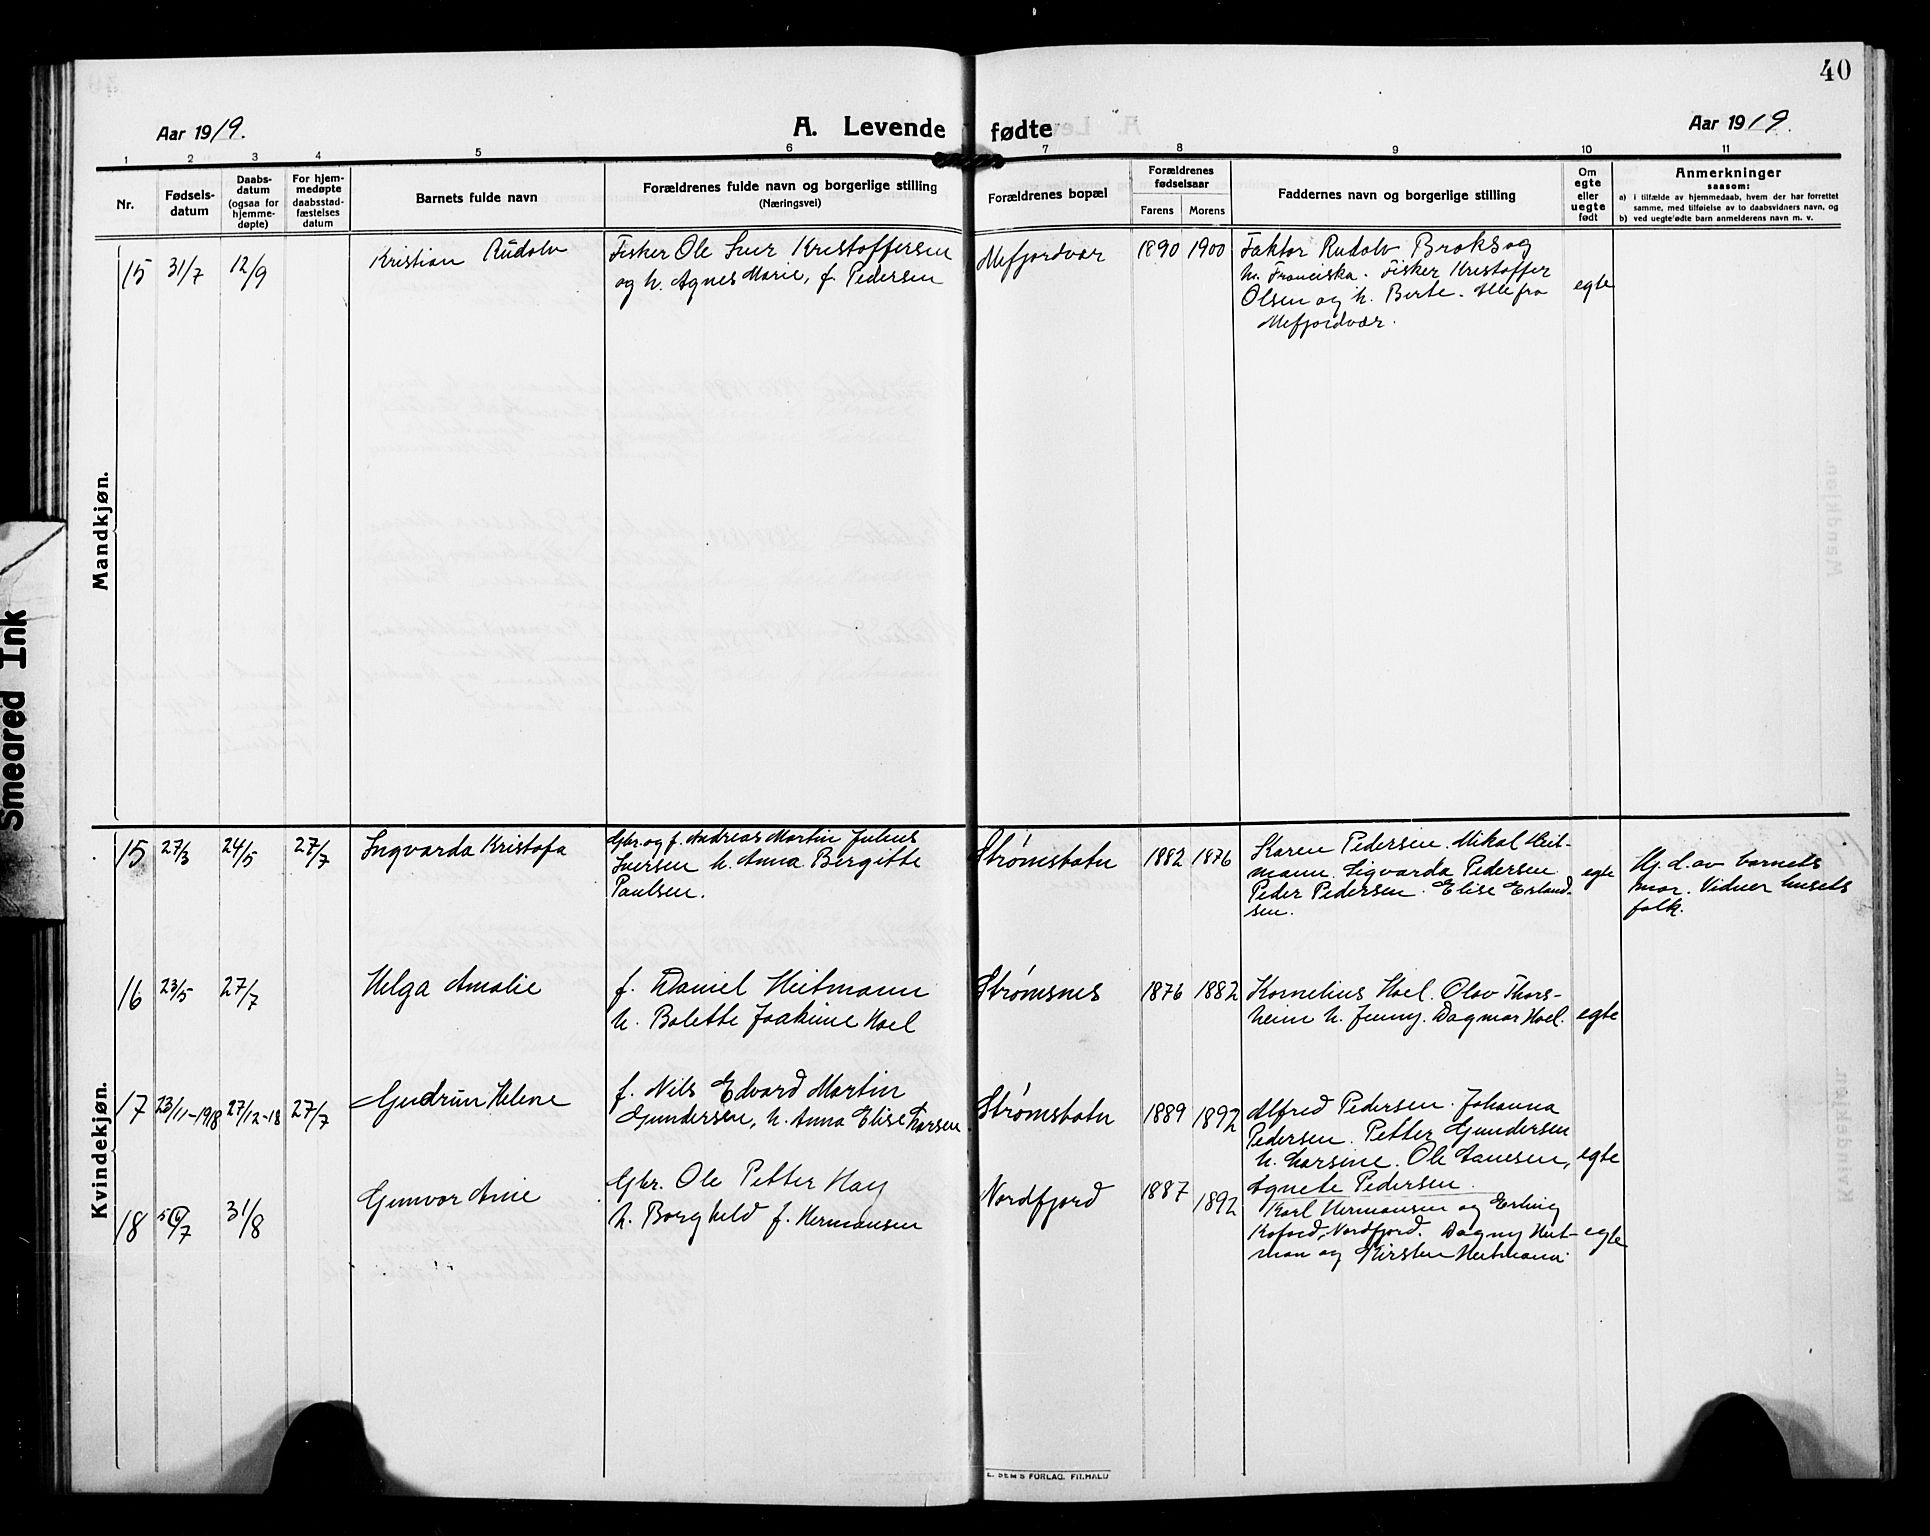 40
Aar 1919.
A. Levende fødte
Aar 1919.
1 2 3 4 5 6 7 8 9 10 11
Nr.
Fødsels-
datum
Daabs-
datum
(ogsaa for
hjemme-
døpte)
For hjem-
medøpte
daabsstad-
fæstelses
datum
Barnets fulde navn
Forældrenes fulde navn og borgerlige stilling
(Næringsvei)
Forældrenes bopæl
Forældrenes
fødselsaar
Farens Morens
Faddernes navn og borgerlige stilling
Om
egte
eller
uegte
født
Anmerkninger
saasom:
a) i tilfælde av hjemmedaab, hvem der har forrettet
samme, med tilføielse av to daabsvidners navn, og
b) ved uegte fødte barn anmelderens navn m. v.
Mandkjøn.
15 31/7 12/9
Kristian Rudolv
Fisker Ole Iver Kristoffersen
og h. Agnes Marie, f. Pedersen
Mefjordvær
1890 1900
Faktor Rudolv Broksog
h. Franciska. Fisker Kristoffer
Olsen og h. Berte. Alle fra
Mefjordvær.
egte
Kvindekjøn.
15 27/3 24/5 27/7
Ingvarda Kristofa
Gbr. og f. Andreas Martin Julius
Iversen h. Anna Bergitte
Paulsen.
Strømsbotn
1882 1876
Karen Pedersen. Mikal Heit-
mann. Sigvarda Pedersen
Peder Pedersen. Elise Erland-
sen.
egte
Hj. d. av barnets
mor. Vidner husets
folk.
16 23/5 27/7
Helga Amalie
f. Daniel Heitmann
h. Bolette Joakime Hoel
Strømsnes
1876 1882
Kornelius Hoel. Olav Thors-
heim h. Jenny. Dagmar Hoel.
egte
17 23/11-1918 27/12-18 27/7
Gudrun Helene
f. Nils Edvard Martin
Gundersen, h. Anna Elise Larsen
Strømsbotn
1889 1892
Alfred Pedersen. Johanna
Pedersen. Petter Gundersen
h. Larsine. Ole
Agnete Pedersen.
egte
18 5/7 31/8
Gunvor Anie
Gbr. Ole Petter Hay
h. Borghild f. Hermansen
Nordfjord
1887 1892
Karl Hermansen og Erling
Kofoed, Nordfjord. Dagny Heit-
man og Kirsten Heitmann.
egte
E. SEM'S FORLAG. FR.HALD
Smeared Ink